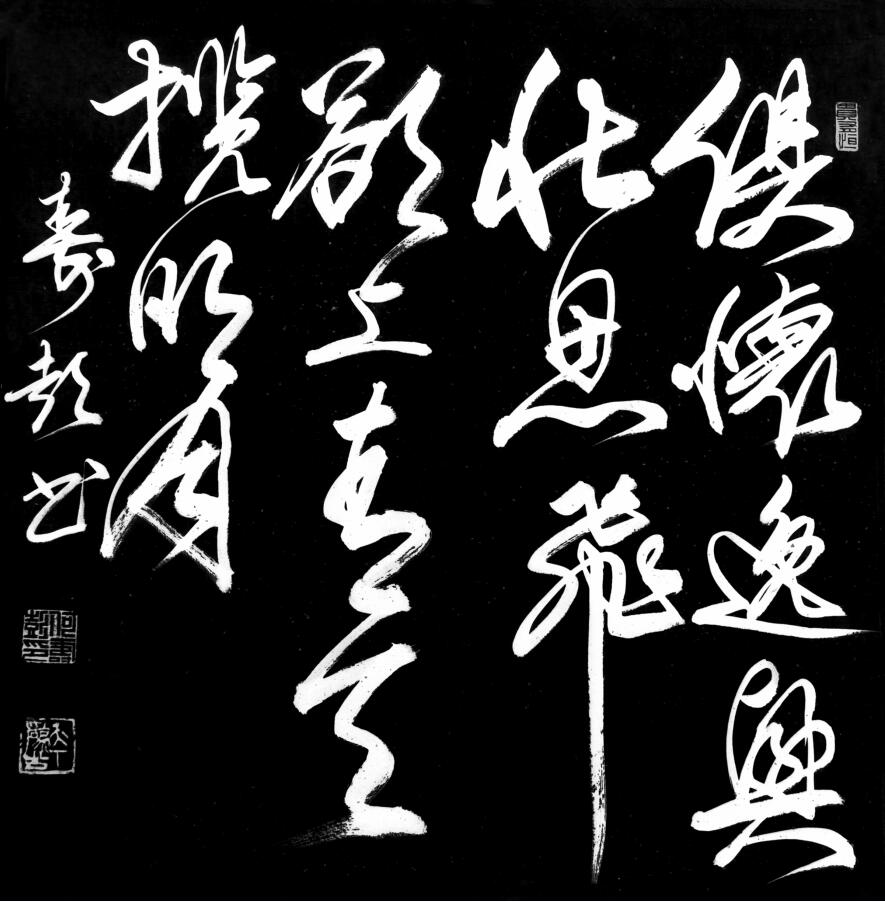 貴有恒
俱懷逸興
壯思飛
欲上青天
攬明月
壽彭书